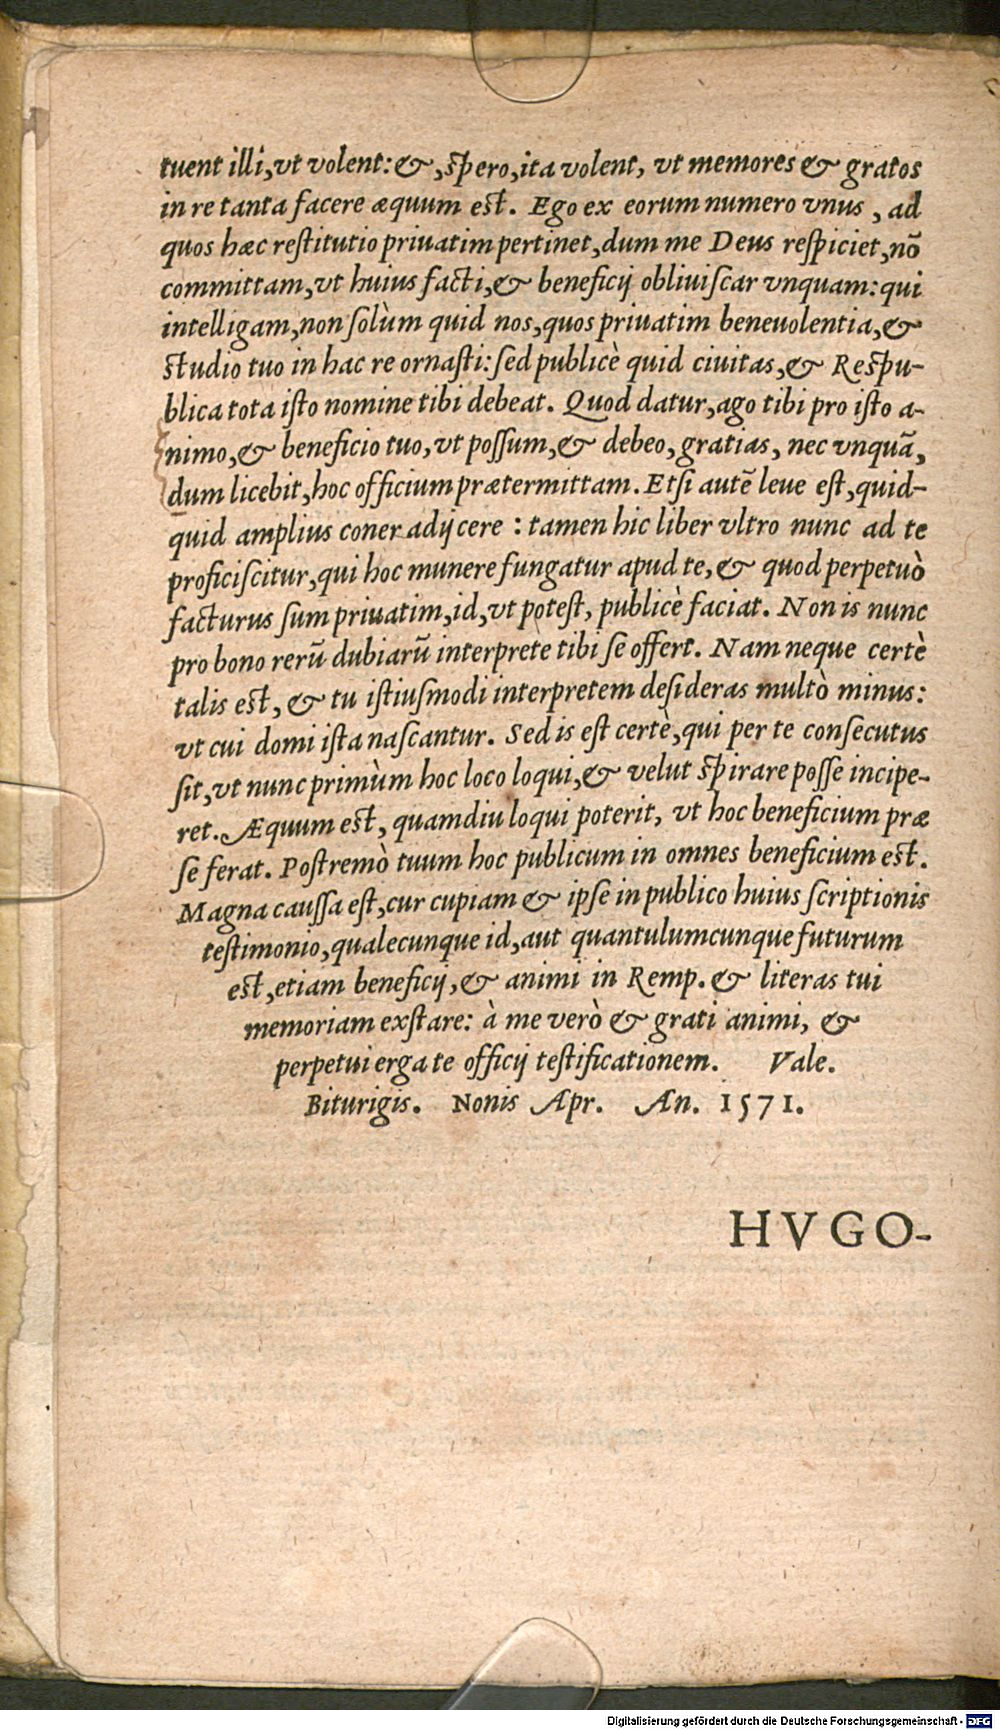 tuent illi, vt volent: &, spero, ita volent, vt memores & gratos
in re tanta facere æquum est. Ego ex eorum numero vnus, ad
quos hæc restitutio priuatim pertinet, dum me Deus respiciet, nō
committam, vt huius facti, & beneficij obliuiscar vnquam: qui
intelligam, non solùm quid nos, quos priuatim beneuolentia, &
studio tuo in hac re ornasti: sed publicè quid ciuitas, & Respu-
blica tota isto nomine tibi debeat. Quod datur, ago tibi pro isto a-
nimo, & beneficio tuo, vt possum, & debeo, gratias, nec vnquā,
dum licebit, hoc officium prætermittam. Etsi autē leue est, quid-
quid amplius coner adijcere: tamen hic liber vltro nunc ad te
proficiscitur, qui hoc munere fungatur apud te, & quod perpetuò
facturus sum priuatim, id, vt potest, publicè faciat. Non is nunc
pro bono rerū dubiarū interprete tibi se offert. Nam neque certè
talis est, & tu istiusmodi interpretem desideras multò minus:
vt cui domi ista nascantur. Sed is est certè, qui per te consecutus
sit, vt nunc primùm hoc loco loqui, & velut spirare posse incipe-
ret. Æquum est, quamdiu loqui poterit, vt hoc beneficium præ
se ferat. Postremò tuum hoc publicum in omnes beneficium est.
Magna caussa est, cur cupiam & ipse in publico huius scriptionis
testimonio, qualecunque id, aut quantulumcunque futurum
est, etiam beneficij, & animi in Remp. & literas tui
memoriam exstare: à me verò & grati animi, &
perpetui erga te officij testificationem. Vale.
Biturigis. Nonis Apr. An. 1571.
HVGO-
Digitalisierung gefördert durch die Deutsche Forschungsgemeinschaft - DFG